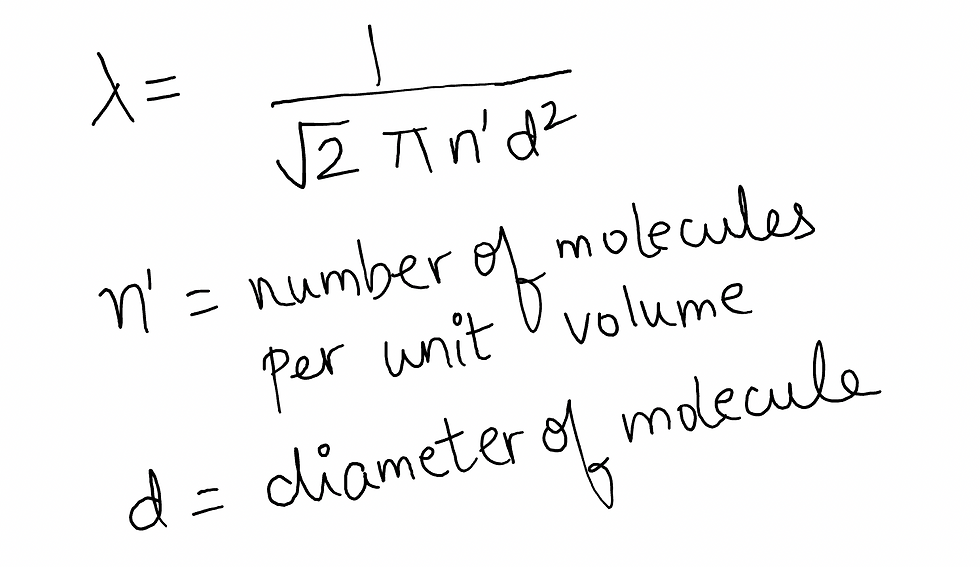 λ = 1 / √2 π n' d²
n' = number of molecules
per unit volume
d = diameter of molecule